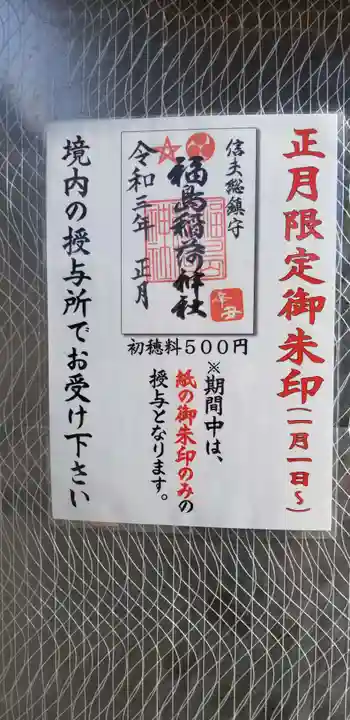 正月限定御朱印(一月一日~)
信夫総鎮守
福島稲荷神社
令和三年 正月
初穂料500円
※期間中は、
紙の御朱印のみの
授与となります。
境内の授与所でお受け下さい